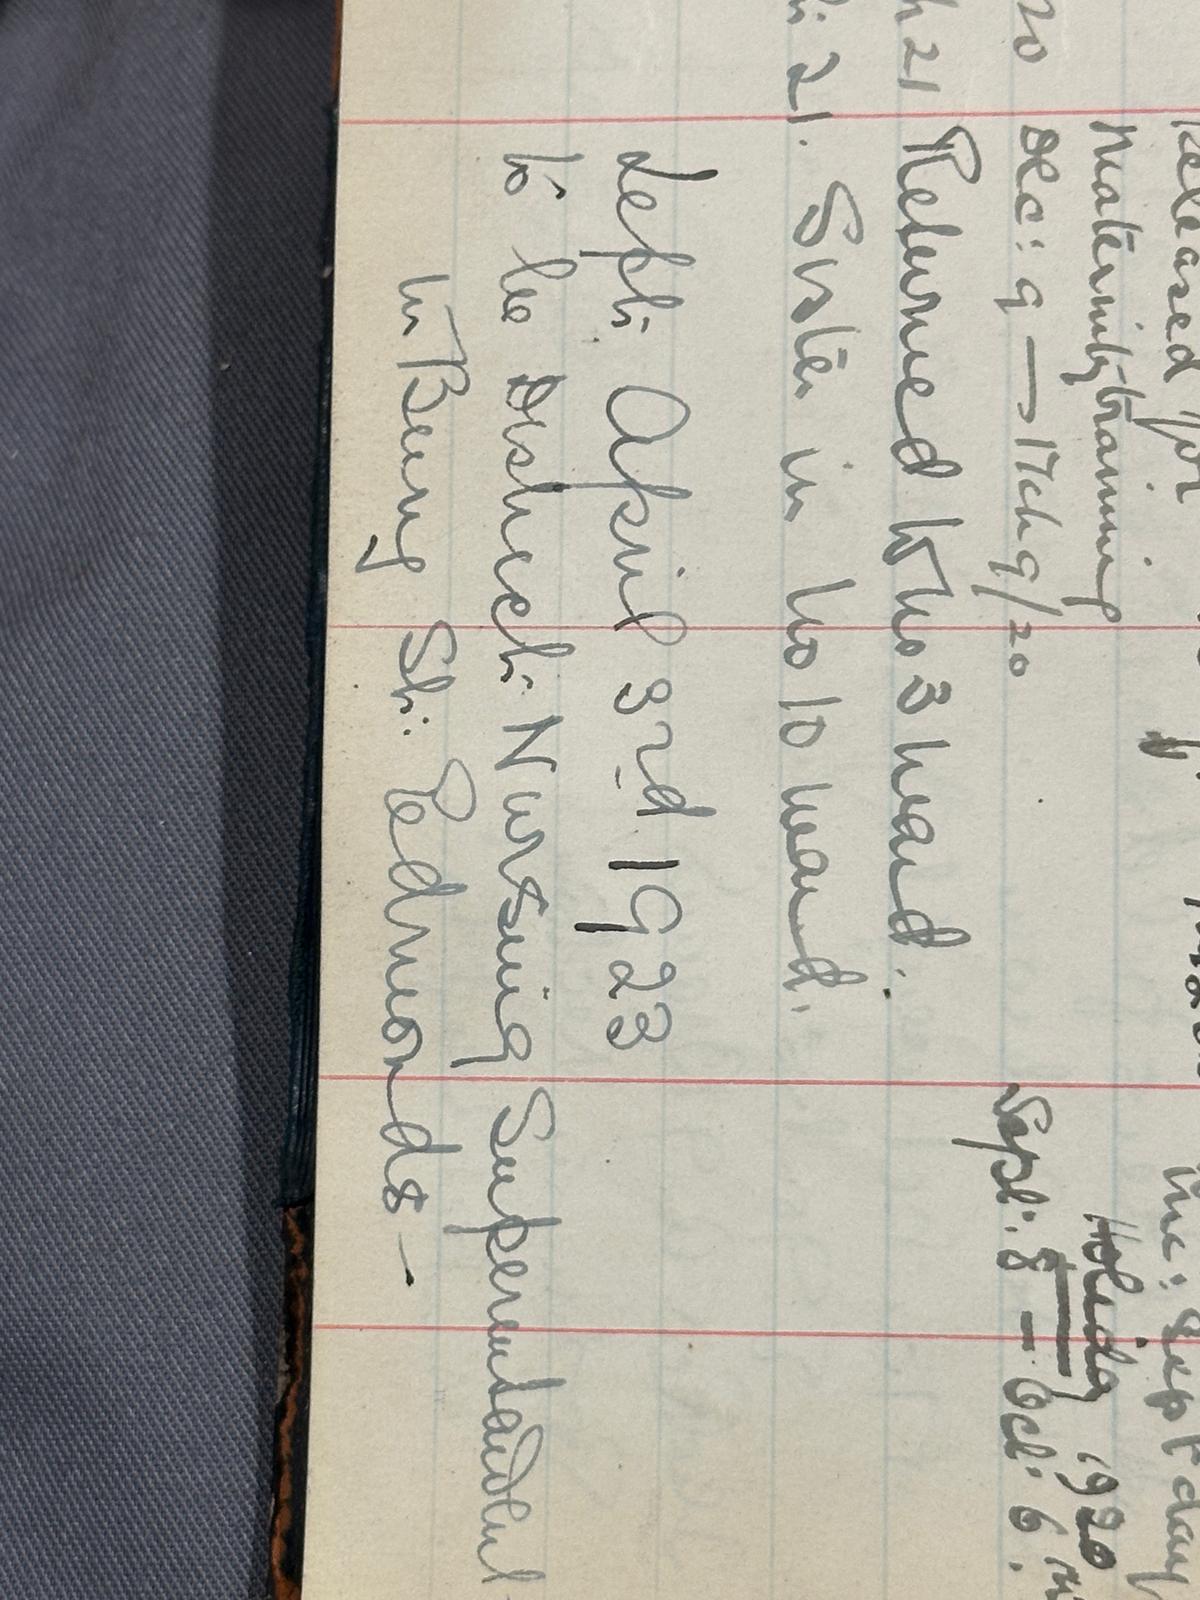 Released for
Maternity training
20 Dec: 9 — 17th 9/20
Holiday 1920
Sept: 8 — Oct: 6
21 Returned to No 3 Ward.
21. Sister in No 10 Ward.
Left: April 3rd 1923
to be District: Nursing Superintendent
in Bury St: Edmonds —